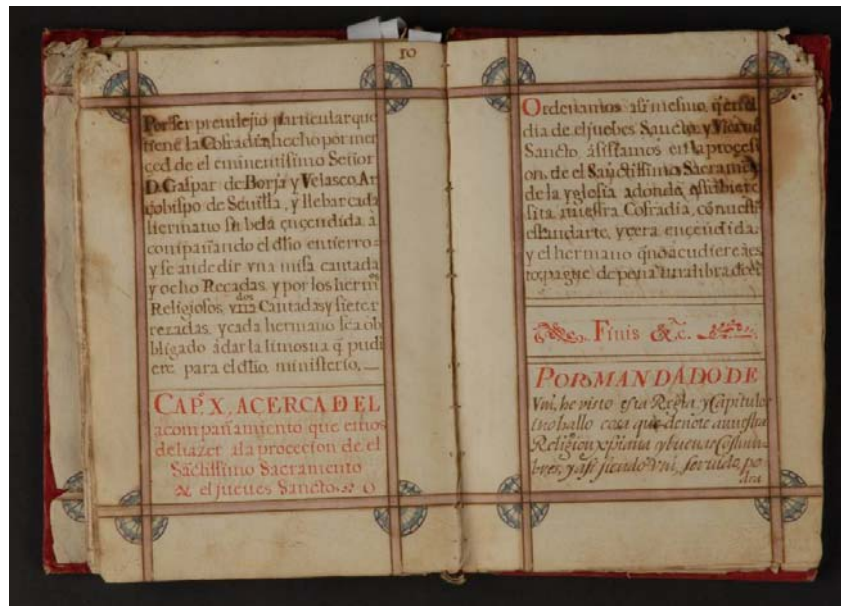 10
Por ser preuilejio particular que
tiene la Cofradia, hecho por mer
ced de el eminentisimo Señor
D. Gaspar de Borja y Velasco, Ar
çobispo de Seuilla, y llebar cada
hermano su bela ençendida, à
compañando el dho entierro =
y se an de dir vna misa cantada
y ocho Reçadas, y por los herm os
Religiosos, dos vna Cantadas y siete r
rezadas, y cada hermano sea ob
bligado à dar la limosna q̃ pudi
ere para el dho ministerio, —
CAP.º X, ACERCA DEL
acompañamiento que emos
de hazer à la proçecion de el
Sãctissimo Sacramento
& el jueues Sancto,
Ordenamos asi mesmo, q̃ en el
dia de el juebes Sancto, y Vierne
Sancto, àsistamos en la proçesi
on, de el Sanctissimo Sacramẽ
de la yglesia adonde estubiere
sita nuestra Cofradia, cõ nuestr
estandarte, y çera ençendida,
y el hermano q̃ nõ acudiere à es
to, pague de pena una libra de
Finis &c.
POR MANDADO DE
Vm, he visto esta Regla, y Capitulos
i no hallo cosa que denote a nuestra
Religion xp̃iana y buenas Costum
bres, y asi siendo Vm, seruido, po
dra